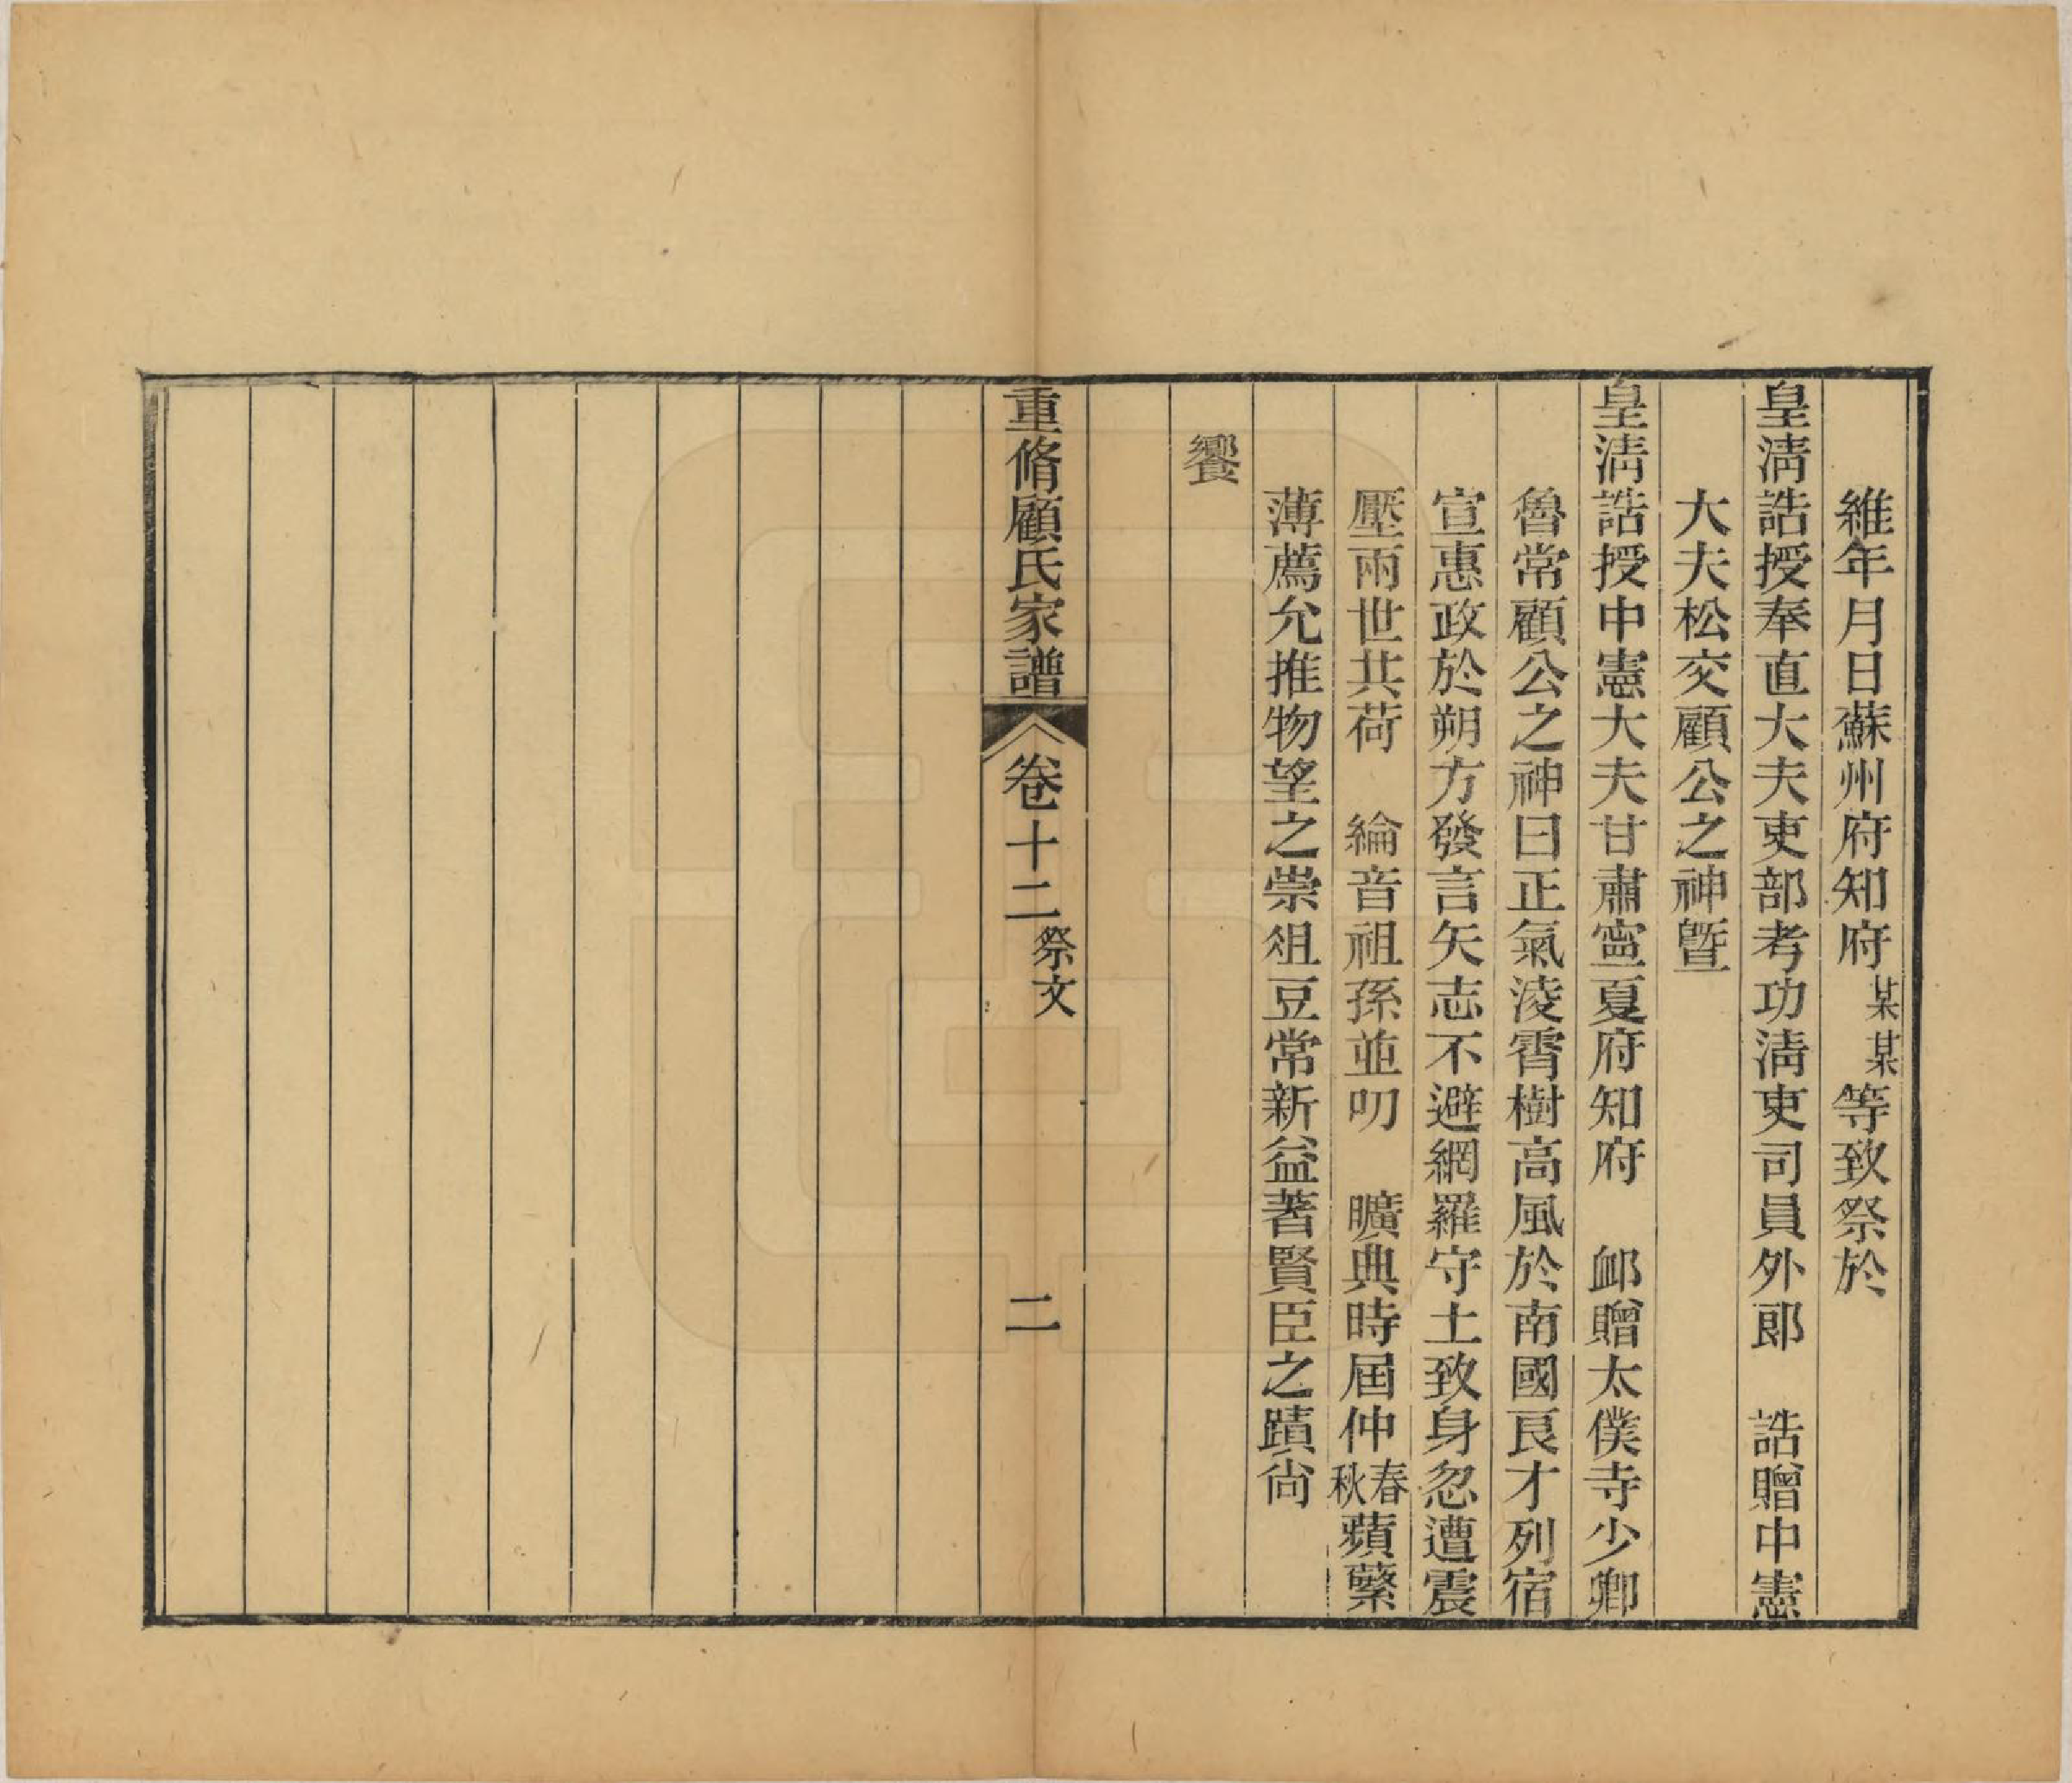 維年月日蘇州府知府某某等致祭於
皇淸誥授奉直大夫吏部考功淸吏司員外郎　誥贈中憲
大夫松交顧公之神曁
皇淸誥授中憲大夫甘肅寧夏府知府　卹贈太僕寺少卿
魯常顧公之神曰正氣淩霄樹高風於南國良才列宿
宣惠政於朔方發言矢志不避網羅守土致身忽遭震
壓兩世共荷　綸音祖孫並叨　曠典時屆仲春秋蘋蘩
薄薦允推物望之崇俎豆常新益著賢臣之蹟尙
饗
重脩顧氏家譜　卷十二　祭文　二